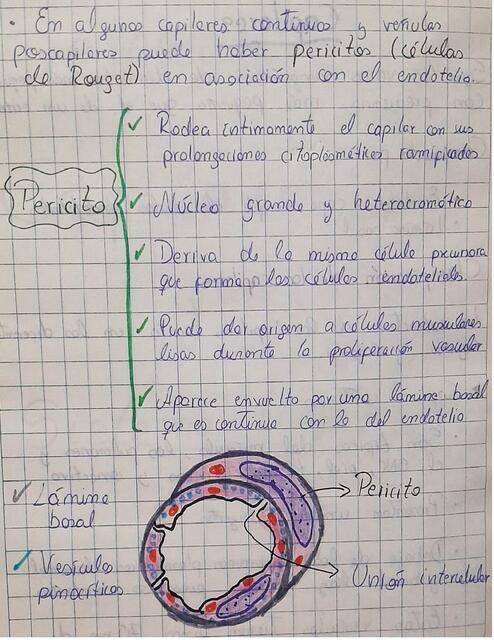 • En algunos capilares continuos y vénulas
poscapilares puede haber pericitos (células
de Rouget) en asociación con el endotelio.
Pericito
✓ Rodea íntimamente el capilar con sus
prolongaciones citoplasmáticas ramificadas
✓ Núcleo grande y heterocromático
✓ Deriva de la misma célula precursora
que forma a las células endoteliales.
✓ Puede dar origen a células musculares
lisas durante la proliferación vascular
✓ Aparece envuelto por una lámina basal
que es continua con la del endotelio
✓ Lámina
basal
→ Pericito
✓ Vesículas
pinocíticas
→ Unión intercelular